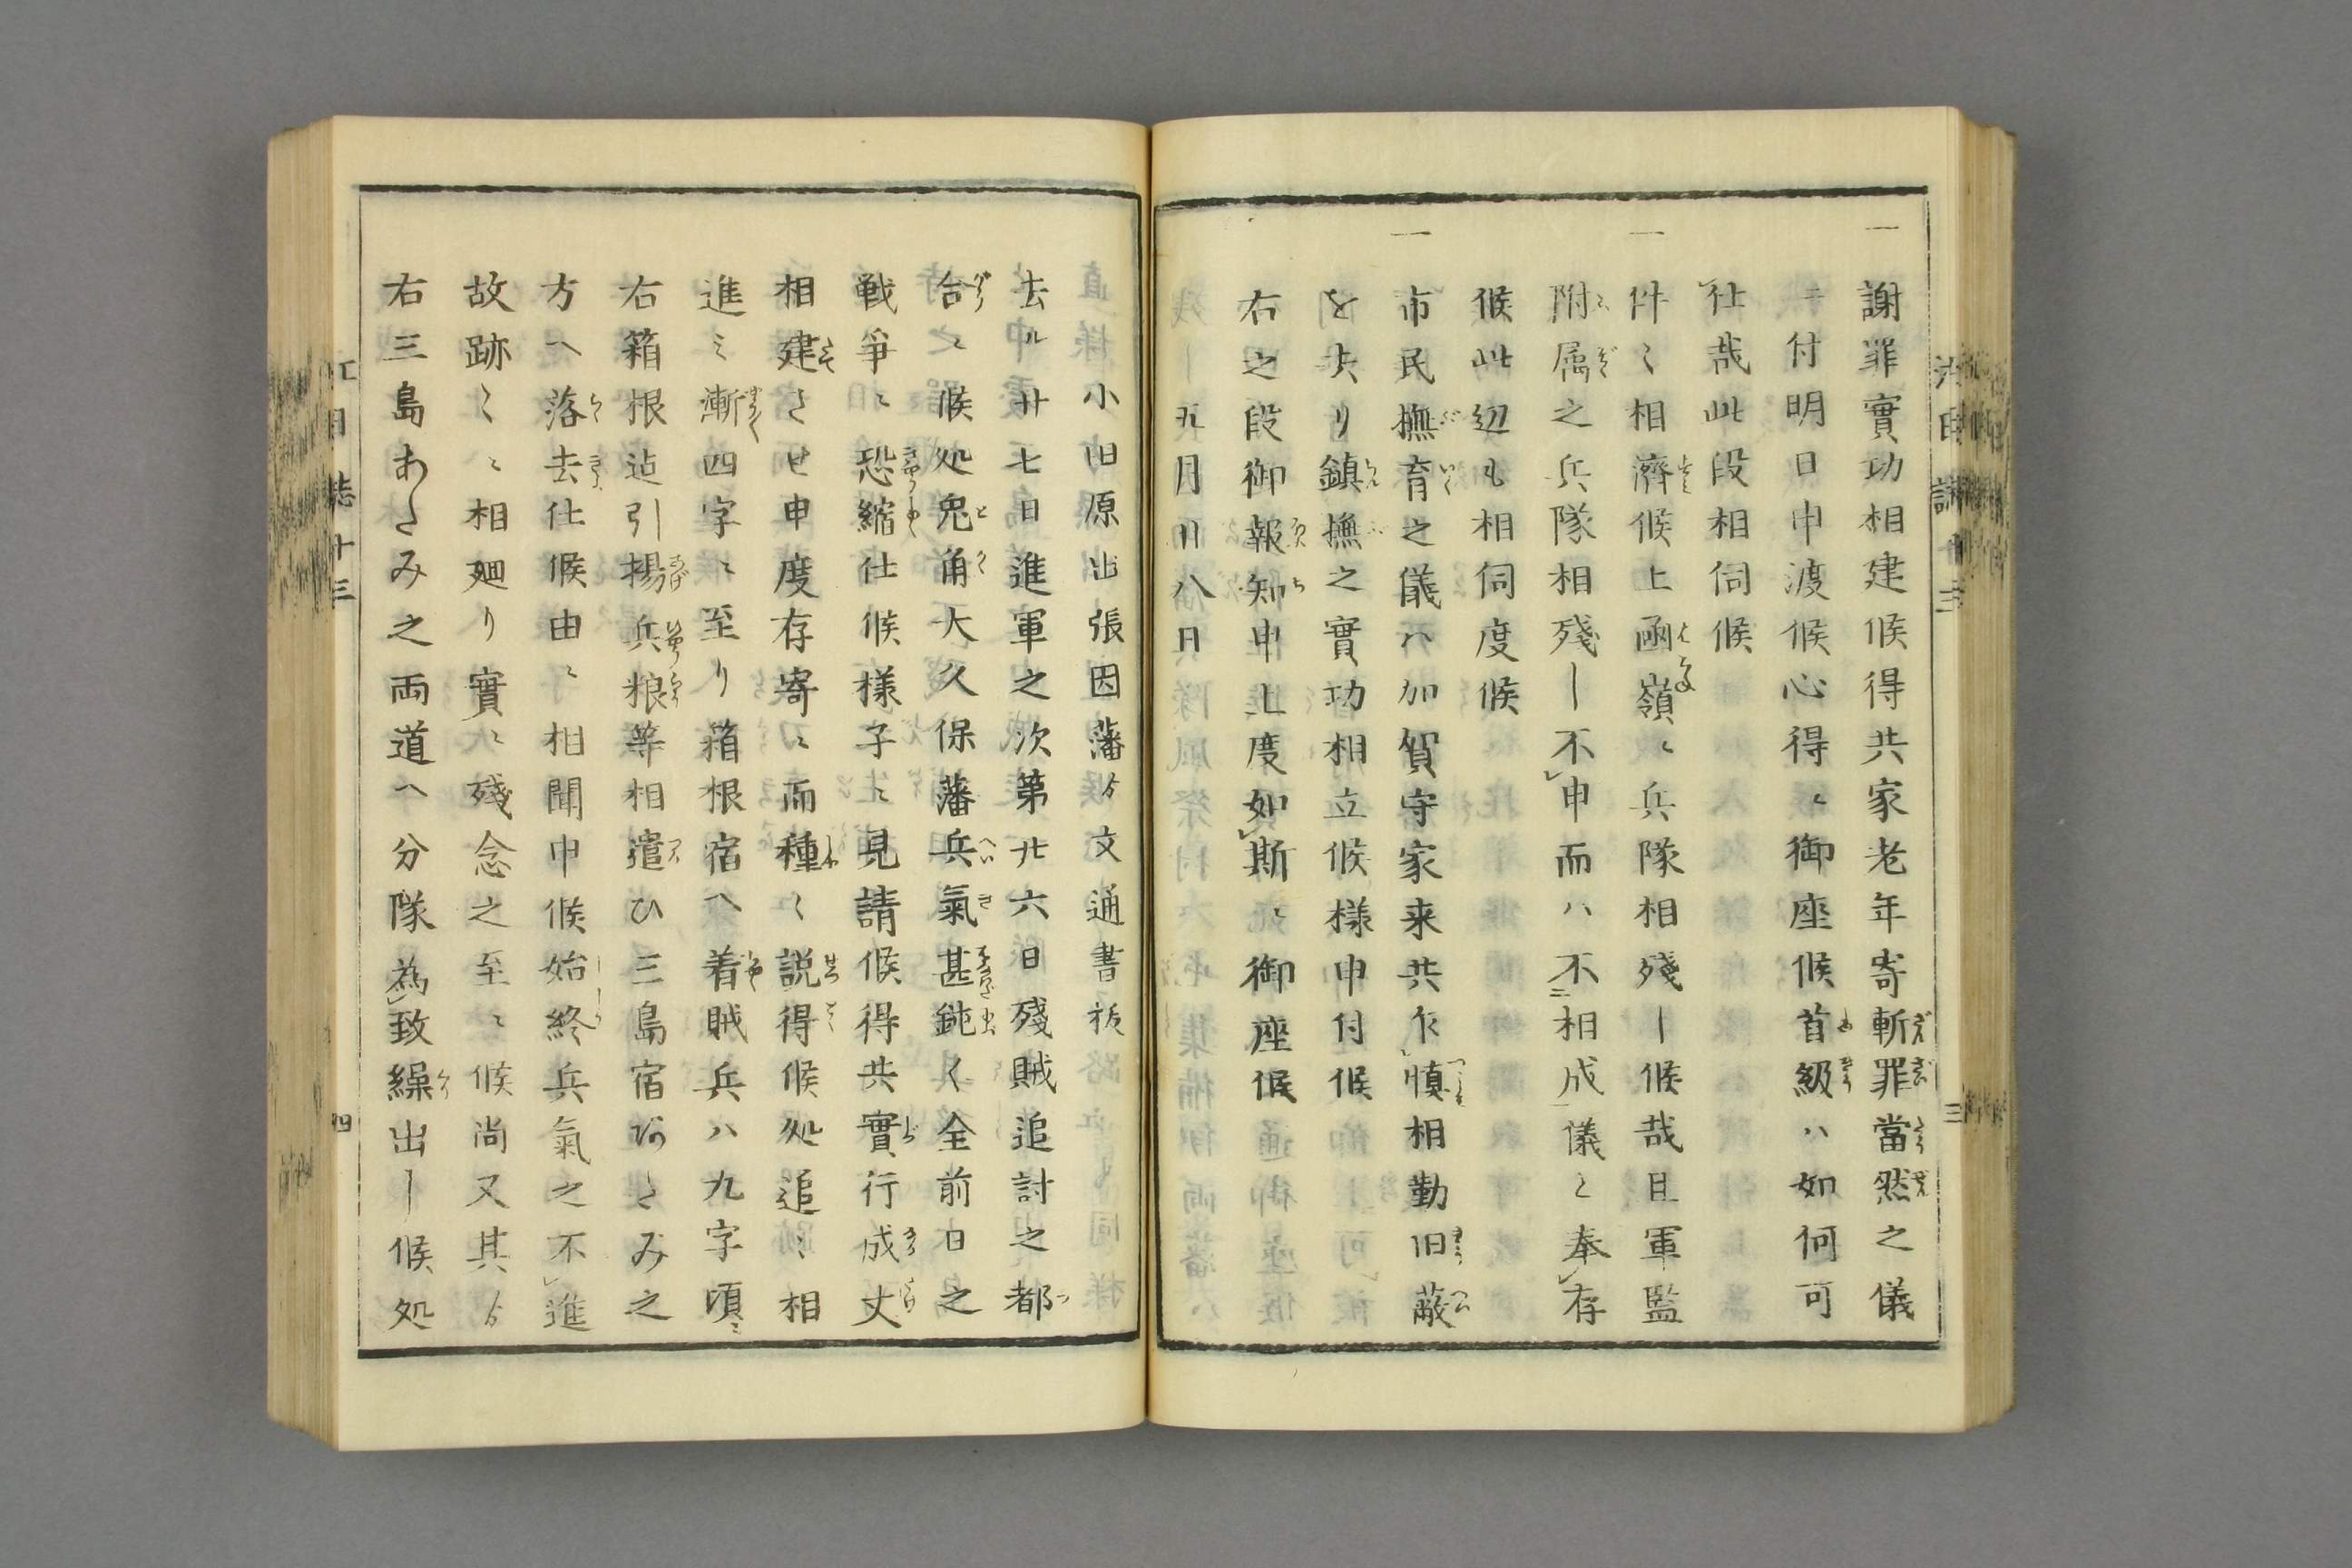 一 謝罪實功相建候得共家老年寄斬罪當然之儀
ニ付明日申渡候心得ニ御座候首級ハ如何可
仕哉此段相伺候
一 件々相濟候上函嶺ニ兵隊相殘し候哉且軍監
附属之兵隊相殘し不申而ハ不相成儀と奉存
候此辺も相伺度候
一 市民撫育之儀ハ加賀守家来共乍慎相勤旧蔽
を去り鎮撫之實功相立候様申付候
右之段御報知申上度如斯ニ御座候
五月廿八日
小田原出張因藩ゟ文通書抜
去ル廿七日進軍之次第廿六日殘賊追討之都
合ニ候処兎角大久保藩兵氣甚鈍く全前日之
戦爭ニ恐縮仕候様子ニ見請候得共實行成丈
相建させ申度存寄ニ而種々説得候処追々相
進ミ漸四字ニ至り箱根宿へ着賊兵ハ九字頃ニ
右箱根迠引揚兵粮等相遣ひ三島宿あたみ之
方へ落去仕候由ニ相聞申候始終兵氣之不進
故跡々ニ相廻り實ニ殘念之至ニ候尚又其ゟ
右三島あたみ之両道へ分隊為致繰出し候処
江日誌十三
四